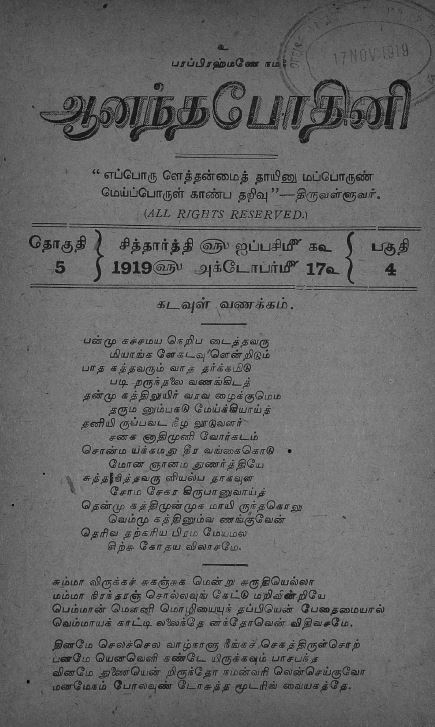 உ
பரப்பிரஹ்மணே நம:
17 NOV 1919
ஆனந்தபோதினி
"எப்பொரு ளெத்தன்மைத் தாயினு மப்பொருண்
மெய்ப்பொருள் காண்ப தறிவு"—திருவள்ளுவர்.
(ALL RIGHTS RESERVED.)
தொகுதி 5
சித்தார்த்தி ௵ ஐப்பசி௴ க௨
1919௵ அக்டோபர்௴ 17௨
பகுதி 4
கடவுள் வணக்கம்.
பன்மு கச்சமய நெறிப டைத்தவரு
மியாங்க ளேகடவு ளென்றிடும்
பாத கத்தவரும் வாத தர்க்கமிடு
படி றருந்தலை வணங்கிடத்
தன்மு கத்திலுயிர் வரவ ழைக்குமெம
தரும னும்பகடு மேய்க்கியாய்த்
தனியி ருப்பவட நீழ லூடுவளர்
சனக னாதிமுனி வோர்கடம்
சொன்ம யக்கமது தீர வங்கைகொடு
மோன ஞானம துணர்த்தியே
சுத்த நித்தவரு ளியல்ப தாகவுள
சோம சேகர கிருபாளுவாய்த்
தென்மு கத்தின்முக மாயி ருந்தகொலு
வெம்மு கத்தினும்வ ணங்குவேன்
தெரிவ தற்கரிய பிரம மேயமல
சிற்சு கோதய விலாசமே.
சும்மா விருக்கச் சுகஞ்சுக மென்று சுருதியெல்லா
மம்மா நிரந்தரஞ் சொல்லவுங் கேட்டு மறிவின்றியே
பெம்மான் மௌனி மொழியையுந் தப்பியென் பேதைமையால்
வெம்மாயக் காட்டி லலைந்தே னந்தோவென் விதிவசமே.
தினமே செலச்செல வாழ்நாளு நீங்கச் செகத்திருள்சொற்
பனமே யெனவெளி கண்டே யிருக்கவும் பாசபந்த
வினமே துணையென் றிருந்தோ நமன்வரி லென்செய்குவோ
மனமேநம் போலவுண் டோசுத்த மூடரிவ் வையகத்தே.